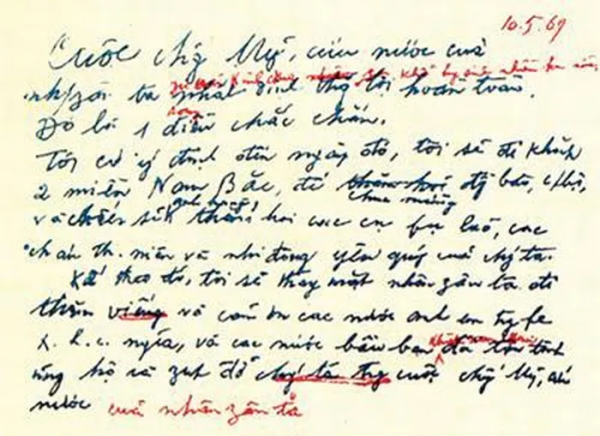 10.5.69
Cuộc chg Mỹ, cứu nước của
hy sinh nhiều hơn nữa,
nhân zân ta nhất định thg lợi hoàn toàn.
Đó là 1 điều chắc chắn.
Tôi có ý định đến ngày đó, tôi sẽ đi khắp
2 miền Nam Bắc, để thăm hỏi đg bào,
chúc mừng
và chiến sĩ thăm hỏi các cụ fụ lão, các
cháu th. niên và nhi đồng yêu quý của chg ta.
Kế theo đó, tôi sẽ thay mặt nhân zân ta đi
thăm viếng và cảm ơn các nước anh em trg fe
X. h. c. nghĩa, và các nước bầu bạn đã tận tình
ủng hộ và zúp đỡ cuộc chg Mỹ, cứu
nước của nhân zân ta